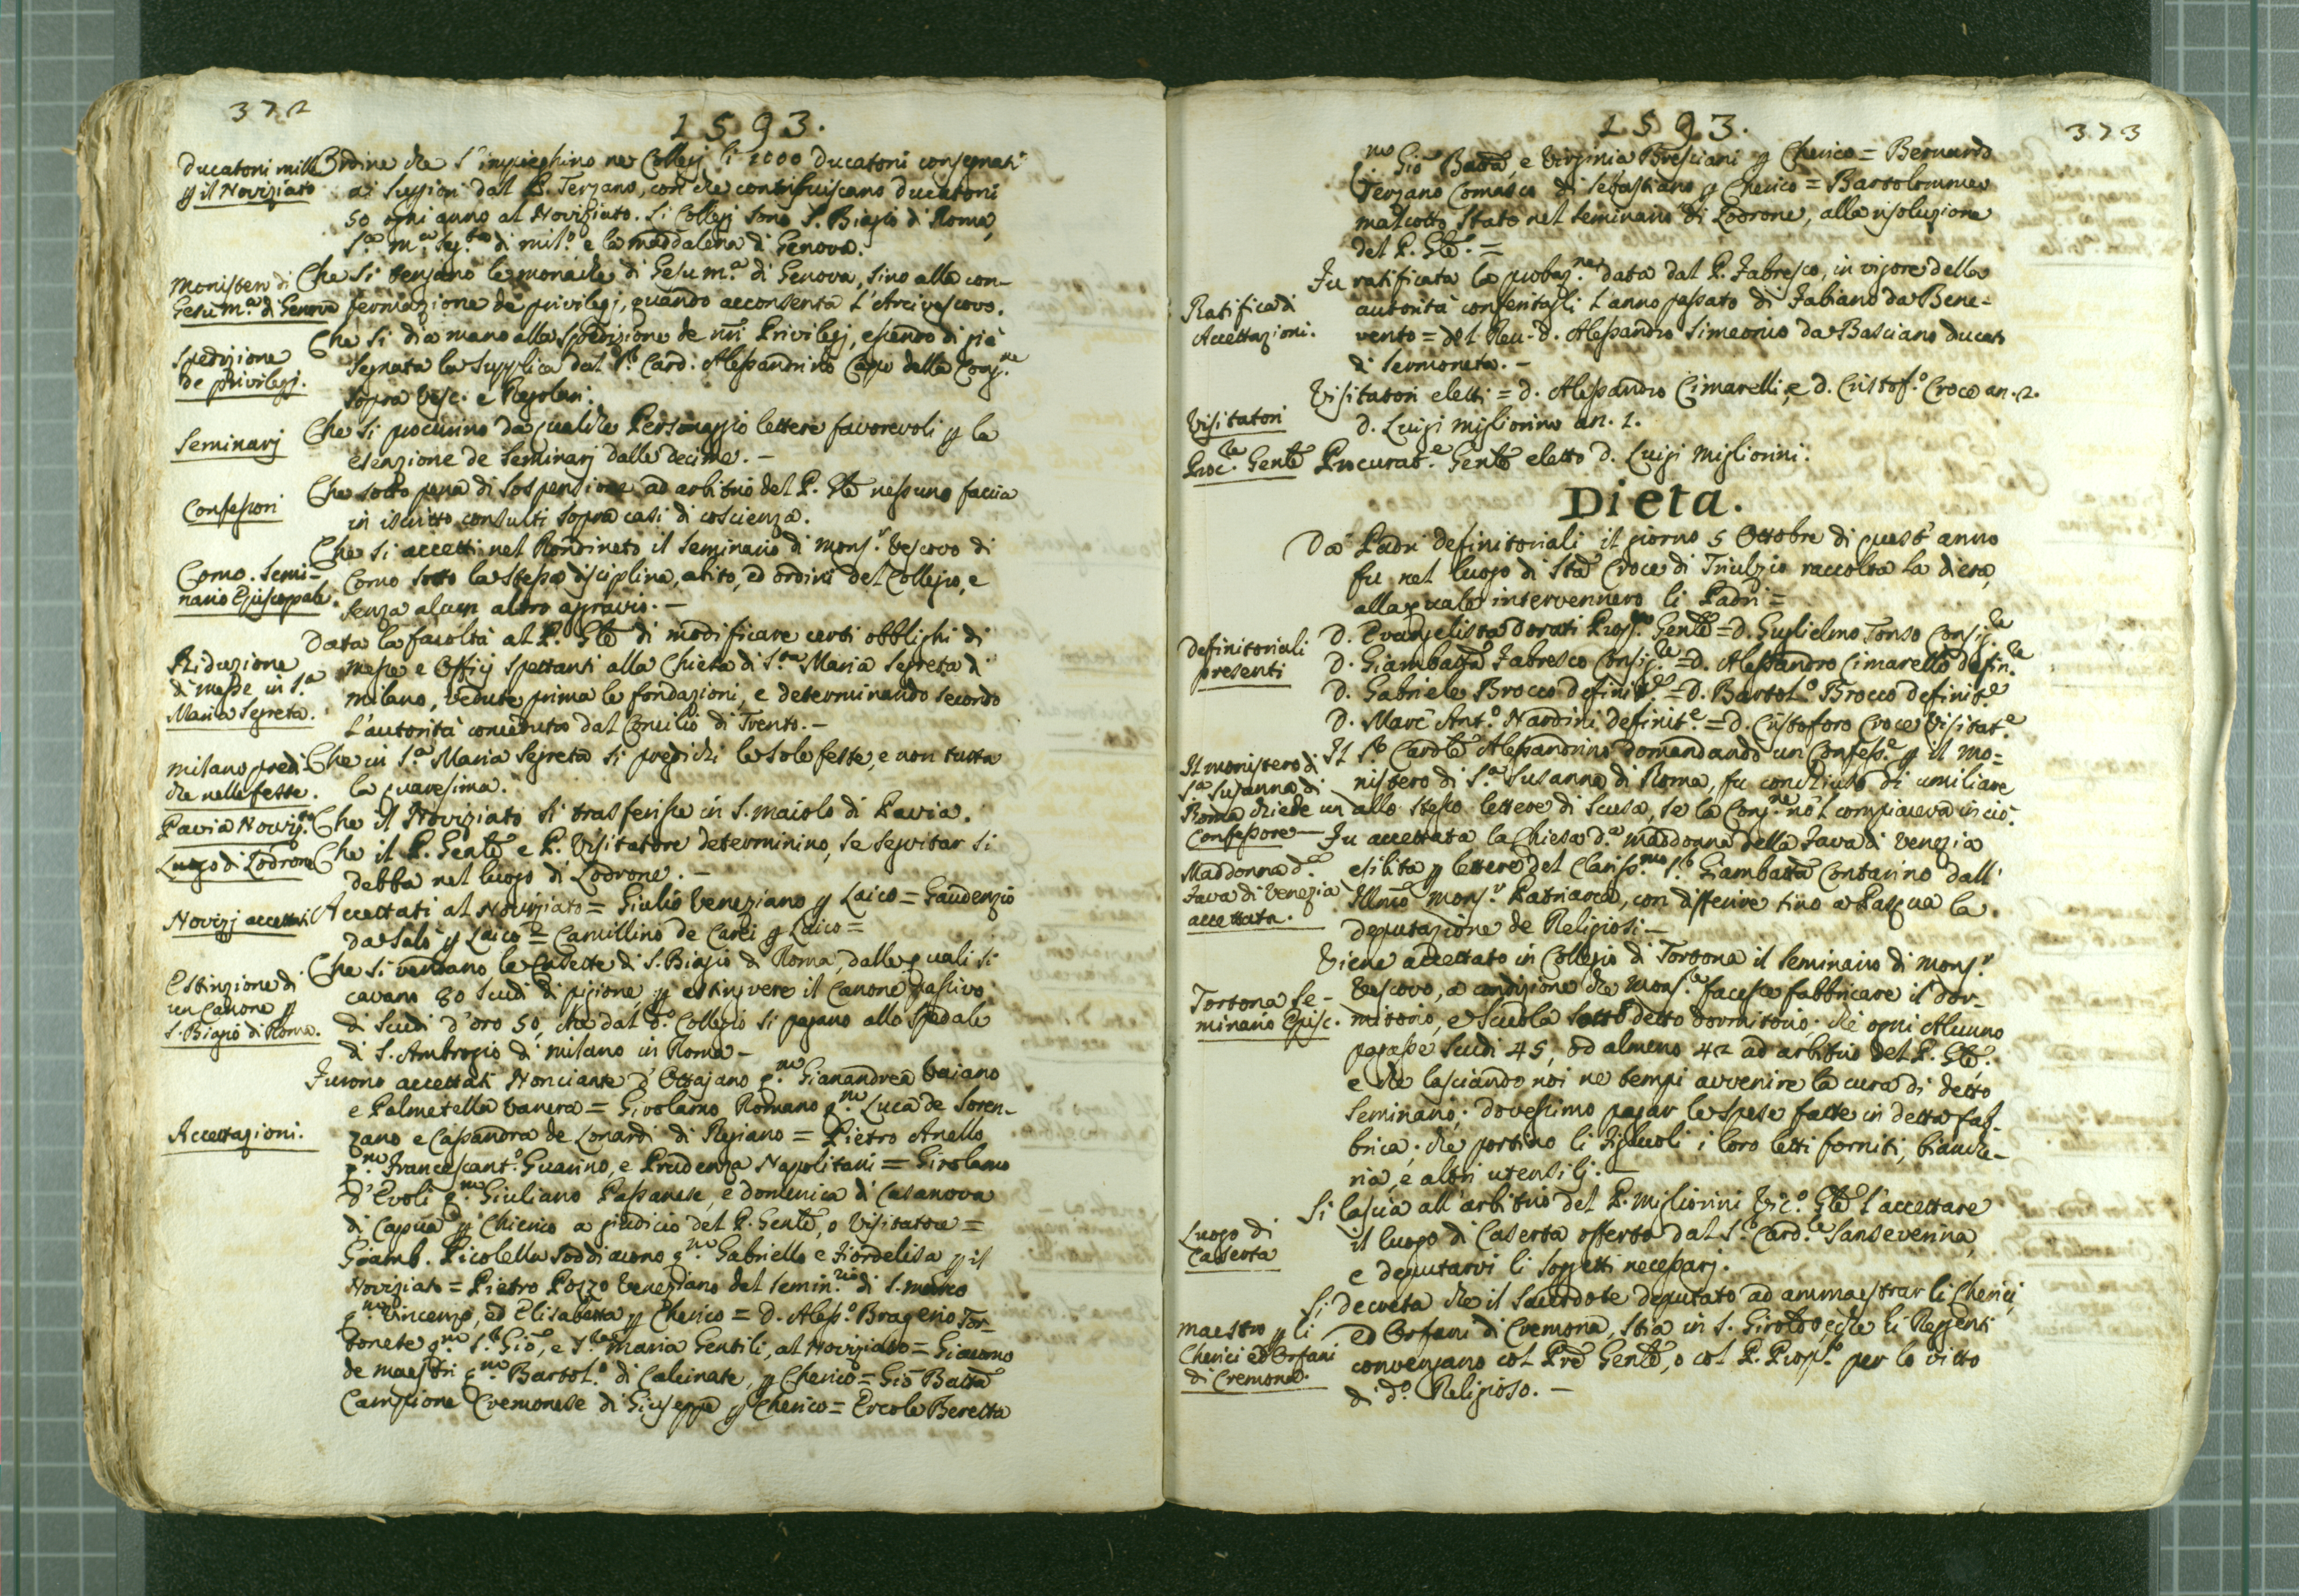 372
1593.
Ducatoni mille
p il Noviziato
Ordine che s'impieghino ne Collegj li 1000 Ducatoni consegnati
ai Suppiori dal P. Terzano, con che contribuiscano ducatoni
50 ogni anno al Noviziato. Li Collegj sono S. Biagio di Roma,
S.a M.a Seg.ta di Mil.o e la Maddalena di Genova.
Monistero di
Gesu M.a di Genova
Che si tengano le monache di Gesu M.a di Genova, sino alla con-
fermazione de privilegj, quando acconsenta l'Arcivescovo.
Spedizione
de privilegj.
Che si dia mano alla spedizione de nri Privilegj, essendo di già
segnata la supplica dal S.r Card: Alessandrino Capo della Cong.ne
sopra Vesc. e Regolari.
Seminarj
Che si procurino da qualche Personaggio lettere favorevoli p la
esenzione de Seminarj dalle decime. –
Confessori
Che sotto pena di sospensione ad arbitrio del P. Gle nessuno faccia
in iscritto consulti sopra casi di coscienza.
Como. Semi-
nario Episcopale.
Che si accetti nel Rondineto il Seminario di Mons.r Vescovo di
Como sotto la stessa disciplina, abito, ed ordini del Collegio, e
senza alcun altro agravio. –
Riduzione
di messe in S.a
Maria Segreta.
Data la facoltà al P. Gle di modificare certi obblighi di
messe e Officj spettanti alla Chiesa di S.ta Maria Segreta di
Milano, vedute prima le fondazioni, e determinando secondo
l'autorità conceduta dal Concilio di Trento. –
Milano predi-
che nelle feste.
Che in S.a Maria Segreta si predichi le sole feste, e non tutta
la quaresima.
Pavia Noviz.to
Che il Noviziato si trasferisse in S. Maiolo di Pavia.
Luogo di Lodrone
Che il P. Genle e P. Visitatore determinino, se seguitar si
debba nel luogo di Lodrone. –
Novizj accettati
Accettati al Noviziato = Giulio Veneziano p Laico = Gaudenzio
da Salò p Laico = Camillino de Carli p Laico =
Estinzione di
un Canone p
S. Biagio di Roma.
Che si vendano le Casette di S. Biagio di Roma, dalle quali si
cavano 80 scudi di pigione, p estinguere il Canone passivo
di Scudi d'oro 50, che dal d.o Collegio si pagano allo Spedale
di S. Ambrogio di Milano in Roma –
Accettazioni.
Furono accettati Nonciante d'Ottajano q.m Gianandrea Vaiano
e Palmetella Vanera = Girolamo Romano q.m Luca de Soren-
zano e Cassandra de Lonardi di Regiano = Pietro Anello
q.m Francescant.o Guarino, e Prudenza Napolitani = Girolamo
d'Evoli q.m Giuliano Passanese, e Domenica di Casanova
di Capua p Chierico a giudicio del P. Genle, o Visitatore =
Giamb. Picolella Soddiacono q.m Gabriello e Fiordelisa p il
Noviziato = Pietro Pozzo Veneziano del Semin.rio di S. Marco
q.m Vincenzo, ed Elisabetta p Cherico = D. Aless.o Brageno Tor-
tonese q.m S.r Gio, e S.ra Maria Gentili, al Noviziato = Giacomo
de Maestri q.m Bartol.o di Calcinate, p Cherico = Gio Batta
Campione Cremonese di Giuseppe p Cherico = Ercole Beretta
1593.
373
q.m Gio Batta, e Virginia Bresciani p Cherico = Bernardo
Terzano Comasco di Sebastiano p Cherico = Bartolommeo
Malcotto stato nel Seminario di Lodrone, alla risoluzione
del P. Gle. =
Ratifica di
Accettazioni.
Fu ratificata la probaz.ne data dal P. Fabresco, in vigore della
autorità conferitagli l'anno passato di Fabiano da Bene-
vento = del Reu. D. Alessandro Simeonio da Basciano ducato
di Sermoneta. –
Visitatori
Visitatori eletti = D. Alessandro Cimarelli, e D. Cristof.o Croce an. 2.
D. Luigi Migliorino an. 1.
Proc.re Genle
Procurat.e Genle eletto D. Luigi Migliorini.
Dieta.
Da Padri definitoriali il giorno 5 Ottobre di quest'anno
fu nel luogo di Sta Croce di Triulzio raccolta la dieta,
alla quale intervennero li Padri =
Definitoriali
presenti
D. Evangelista Dorati Prep.to Genle = D. Guglielmo Tonso Consig.le
D. Giambatta Fabresco Consig.le = D. Alessandro Cimarello defin.re
D. Gabriele Brocco definit.e = D. Bartol.o Brocco definit.e
D. Marc' Ant.o Nardini definit.e = D. Cristoforo Croce Visitat.e
Il monistero di
S.a Susanna di
Roma chiede un
Confessore
Il S.r Cardle Alessandrino domandando un Confess.e p il Mo-
nistero di S.a Susanna di Roma, fu conchiuso di umiliare
allo stesso lettere di scusa, se la Cong.ne nol compiaceva in ciò.
Maddonna d.a
Fava di Venezia
accettata.
Fu accettata la Chiesa d.a Maddonna della Fava di Venezia
esibita p lettere del Clariss.mo S.r Giambatta Contarino dall'
Illmo Mons.r Patriarca, con differire fino a Pasqua la
deputazione de Religiosi –
Tortona Se-
minario Episc.
Viene accettato in Collegio di Tortona il Seminario di Mons.r
Vescovo, a condizione che Mons.re facesse fabbricare il dor-
mitorio, e Scuola sotto detto dormitorio. che ogni Alunno
pagasse scudi 45, od almeno 42 ad arbitrio del P. Gle.
e che lasciando noi ne tempi avvenire la cura di detto
Seminario; dovessimo pagar le spese fatte in detta fab-
brica; che portino li Figliuoli i loro letti forniti, bianche-
ria, e altri utensilj. –
Luogo di
Caserta
Si lascia all'arbitrio del P. Migliorini Vic.o Gle l'accettare
il luogo di Caserta offerto dal S.r Card.le Sanseverina,
e deputarvi li soggetti necessarj.
Maestro p li
Cherici ed Orfani
di Cremona.
Si decreta che il Sacerdote deputato ad ammaestrar li Cherici,
ed Orfani di Cremona, stia in S. Girolo, e che li Reggenti
convengano col Pre Genle, o col P. Prep.to per lo vitto
di d.o Religioso. –